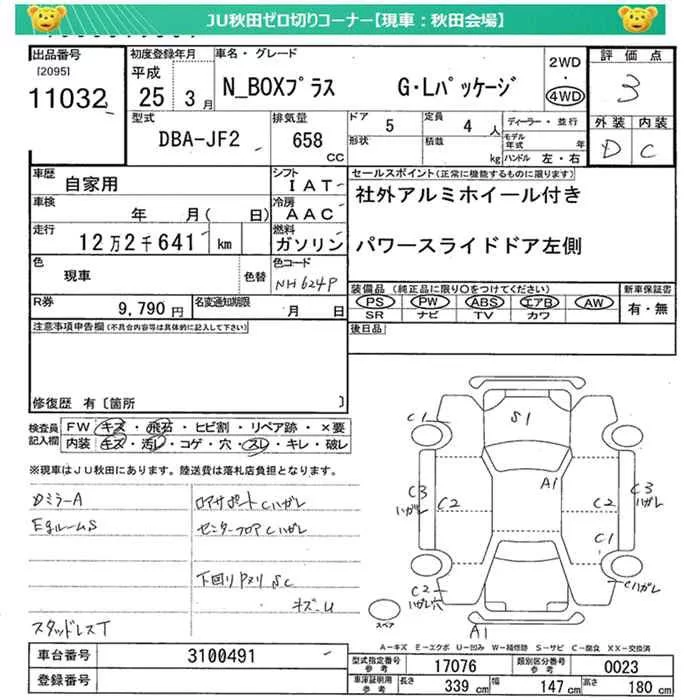 JU秋田ゼロ切りコーナー【現車：秋田会場】
出品番号
[2095]
11032
初度登録年月
平成
25 3月
車名・グレード
N_BOXプラス G・Lパッケージ
2WD
・
4WD
評価点
3
型式
DBA-JF2
排気量
658
CC
ドア 5
形状
定員 4 人
積載 kg
ディーラー・並行
モデル年式 年
ハンドル 左・右
外装 内装
D C
車歴
自家用
シフト
IAT
セールスポイント(正常に機能するものに限ります)
社外アルミホイール付き
パワースライドドア左側
車検
年 月( 日)
冷房
AAC
走行
12万2千641 km
燃料
ガソリン
色
現車
色替
色コード
NH624P
装備品 (純正品に限り○をつけてください)
PS PW ABS エアB AW
SR ナビ TV カワ
新車保証書
有・無
R券
9,790 円
名変通知期限
月 日
後日品
注意事項申告欄(不具合内容等は具体的に記入して下さい)
修復歴 有〔箇所 〕
検査員
記入欄
FW キズ・飛石・ヒビ割・リペア跡・×要
内装 キズ・汚レ・コゲ・穴・スレ・キレ・破レ
※現車はJU秋田にあります。陸送費は落札店負担となります。
DミラーA
EgルームS
スタッドレスT
ロアサポートCハガレ
センターフロアCハガレ
下回りPヌリSC
キズ-U
C1
S1
A1
C3
ハガレ
C2
C2
C3
ハガレ
C1
C2
ハガレ穴
Cハガレ
スペア
A1
A－キズ E－エクボ U－凹み W－補修跡 S－サビ C－腐食 XX－交換済
車台番号
3100491
登録番号
型式指定番号
参考
17076
類別区分番号
参考
0023
車庫証明用
参考
長さ 339 cm
幅 147 cm
高さ 180 cm